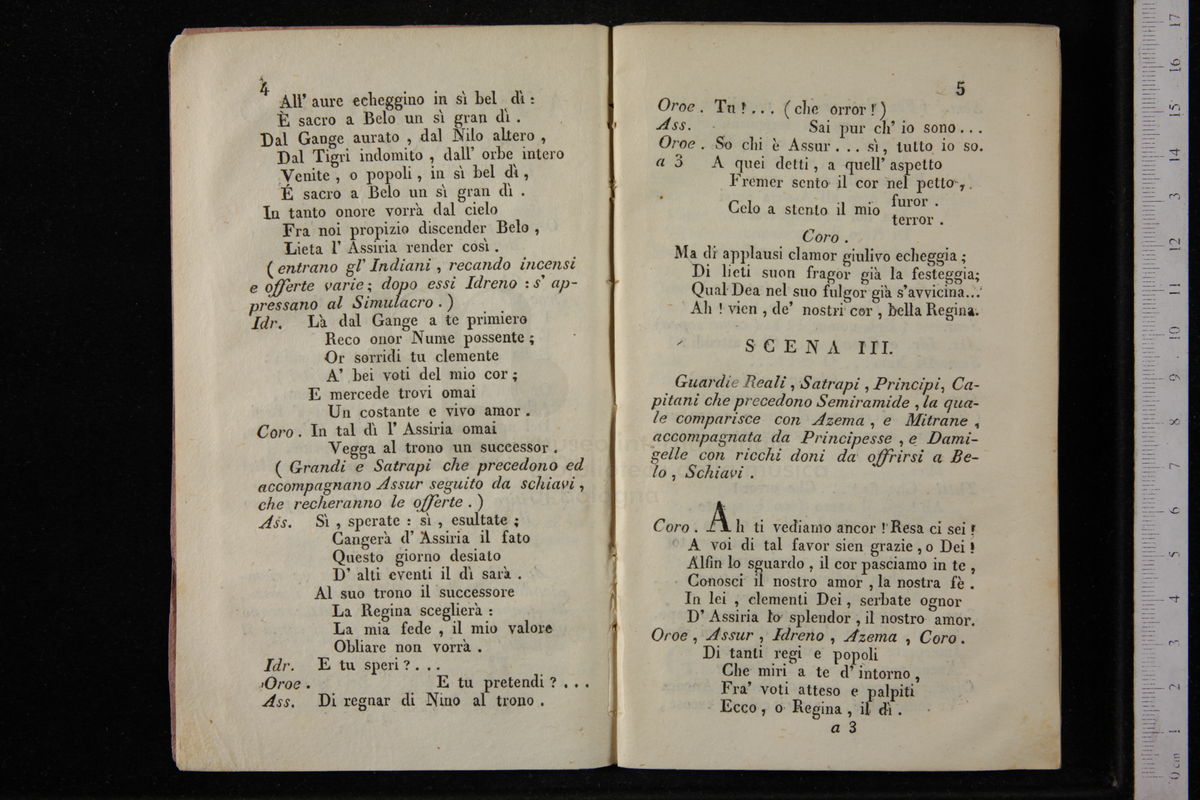 4
All' aure echeggino in sì bel dì :
È sacro a Belo un sì gran dì .
Dal Gange aurato , dal Nilo altero ,
Dal Tigri indomito , dall' orbe intero
Venite , o popoli , in sì bel dì ,
É sacro a Belo un sì gran dì .
In tanto onore vorrà dal cielo
Fra noi propizio discender Belo ,
Lieta l' Assiria render così .
( entrano gl' Indiani , recando incensi
e offerte varie ; dopo essi Idreno : s' ap-
pressano al Simulacro . )
Idr. Là dal Gange a te primiero
Reco onor Nume possente ;
Or sorridi tu clemente
A' bei voti del mio cor ;
E mercede trovi omai
Un costante e vivo amor .
Coro . In tal dì l' Assiria omai
Vegga al trono un successor .
( Grandi e Satrapi che precedono ed
accompagnano Assur seguito da schiavi ,
che recheranno le offerte . )
Ass. Sì , sperate : sì , esultate ;
Cangerà d' Assiria il fato
Questo giorno desiato
D' alti eventi il dì sarà .
Al suo trono il successore
La Regina sceglierà :
La mia fede , il mio valore
Obliare non vorrà .
Idr. E tu speri ? . . .
Oroe . E tu pretendi ? . . .
Ass. Di regnar di Nino al trono .
5
Oroe . Tu ! . . . ( che orror ! )
Ass. Sai pur ch' io sono . . .
Oroe . So chi è Assur . . . sì , tutto io so.
a 3 A quei detti , a quell' aspetto
Fremer sento il cor nel petto ,
Celo a stento il mio furor .
terror .
Coro .
Ma di applausi clamor giulivo echeggia ;
Di lieti suon fragor già la festeggia;
Qual Dea nel suo fulgor già s'avvicina...
Ah ! vien , de' nostri cor , bella Regina.
SCENA III.
Guardie Reali , Satrapi , Principi, Ca-
pitani che precedono Semiramide , la qua-
le comparisce con Azema , e Mitrane ,
accompagnata da Principesse , e Dami-
gelle con ricchi doni da offrirsi a Be-
lo , Schiavi .
Coro . Ah ti vediamo ancor ! Resa ci sei !
A voi di tal favor sien grazie , o Dei !
Alfin lo sguardo , il cor pasciamo in te ,
Conosci il nostro amor , la nostra fè .
In lei , clementi Dei , serbate ognor
D' Assiria lo splendor , il nostro amor.
Oroe , Assur , Idreno , Azema , Coro .
Di tanti regi e popoli
Che miri a te d' intorno ,
Fra' voti atteso e palpiti
Ecco , o Regina , il dì .
a 3
0 cm 1 2 3 4 5 6 7 8 9 10 11 12 13 14 15 16 17